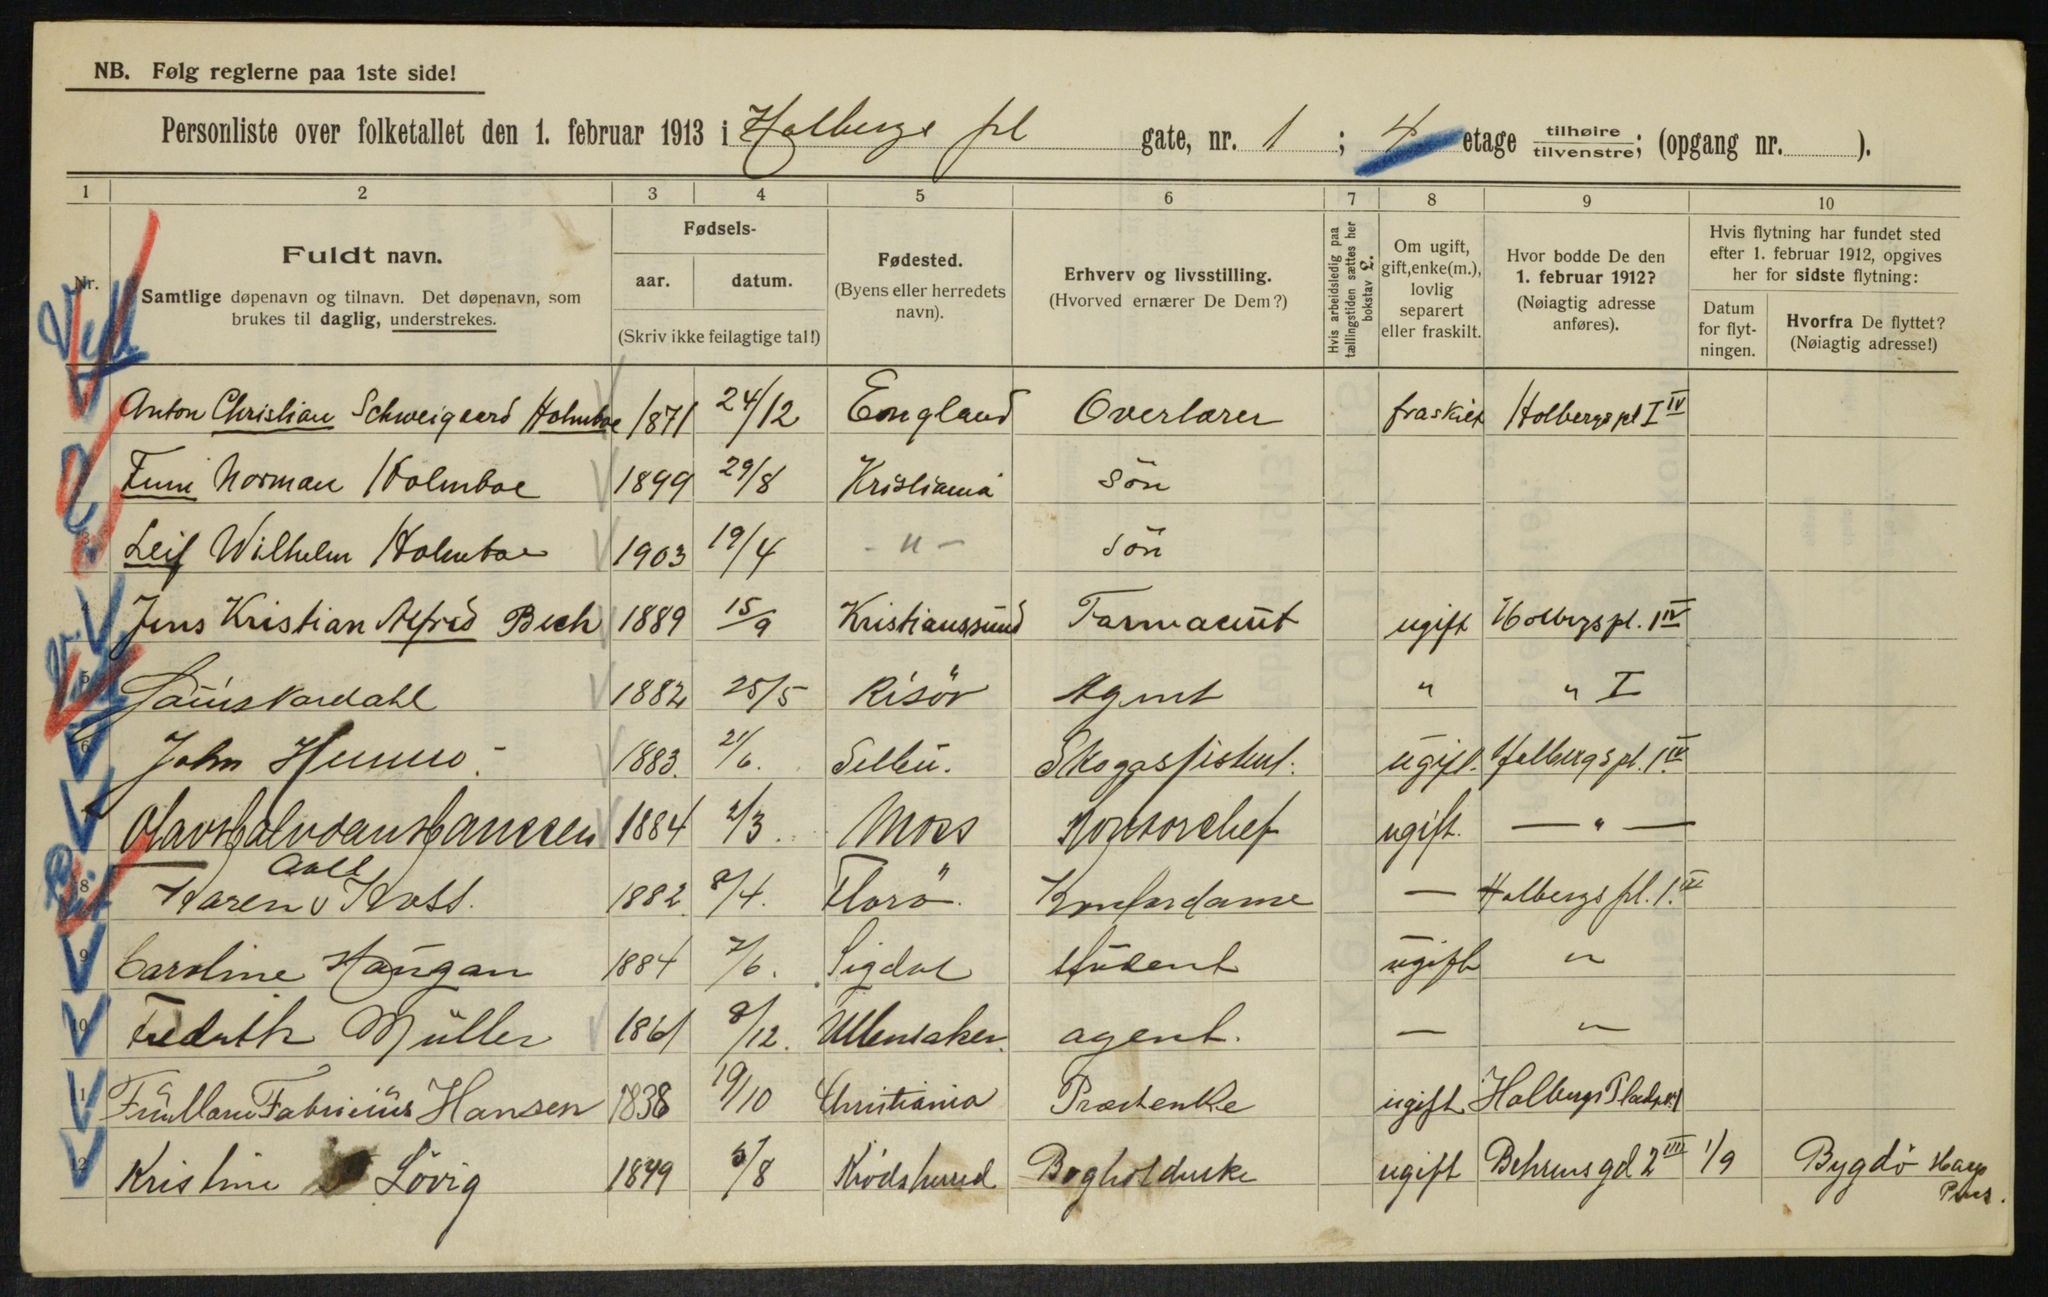 NB. Følg reglerne paa 1ste side!
Personliste over folketallet den 1. februar 1913 i Holbergs pl gate, nr. 1 ; 4 etage tilhøire tilvenstre; (opgang nr. ).
1 2 3 4 5 6 7 8 9 10
Nr.
Fuldt navn.
Samtlige døpenavn og tilnavn. Det døpenavn, som
brukes til daglig, understrekes.
Fødsels-
aar. datum.
(Skriv ikke feilagtige tal!)
Fødested.
(Byens eller herredets
navn).
Erhverv og livsstilling.
(Hvorved ernærer De Dem?)
Hvis arbeidsledig paa
tællingstiden sættes her
bokstav £.
Om ugift,
gift, enke(m.),
lovlig
separert
eller fraskilt.
Hvor bodde De den
1. februar 1912?
(Nøiagtig adresse
anføres).
Hvis flytning har fundet sted
efter 1. februar 1912, opgives
her for sidste flytning:
Datum
for flyt-
ningen.
Hvorfra De flyttet?
(Nøiagtig adresse!)
Anton Christian Schweigaard Holmboe 1871 24/12 England Overlærer fraskilt Holbergs pl I IV
Norman Holmboe 1899 29/8 Kristiania Sön
3 Leif Wilhelm Holmboe 1903 19/4 -"- Sön
4 Jens Kristian Alfred Bech 1889 15/9 Kristianssund Farmaceut ugift Holbergs pl. 1 IV
5 1882 25/5 Risör Agent " " I
6 John Hummo 1883. 21/6. Selbu. ugift. Holbergs pl. 1. IV
Olav Halvdan Hanssen 1884 2/3 Moss Kontorchef ugift. — " —
8 Karen Aall Koss. 1882. 8/4. Florö. Kontordame — Holbergs pl. 1. IV
9 Caroline Haugan 1884 7/6. Sigdal student ugift "
10 Fredrik Müller 1861 8/12. Ullensaker. agent. — "
11 Fabricius Hansen 1838 19/10 Christiania Præstenke ugift Holbergs Plads
12 Kristine Lövig 1879 5/8 Krödsherred Bogholderske ugift Behrens gd 2 III 1/9 Bygdö Hage